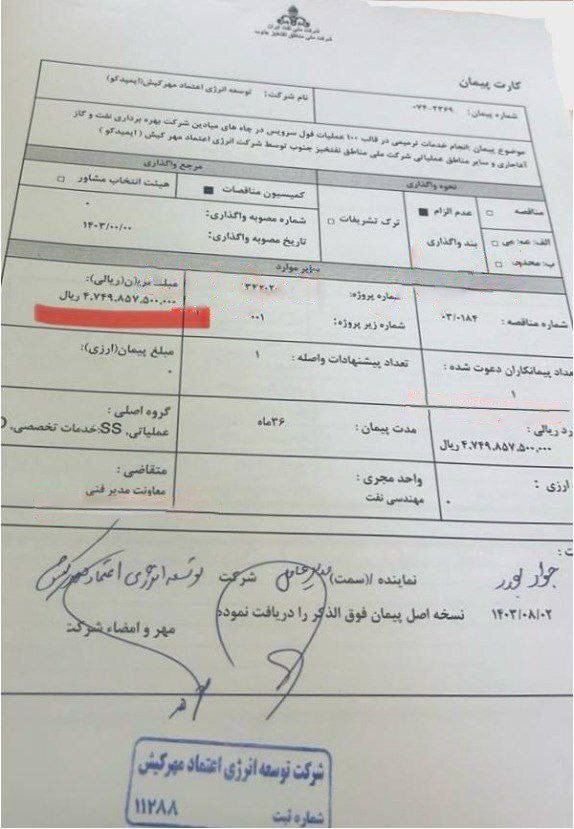 شرکت ملی نفت ایران
شرکت ملی مناطق نفتخیز جنوب
کارت پیمان
شماره پیمان: ۰۷۴-۲۳۶۹
نام شرکت: توسعه انرژی اعتماد مهرکیش(ایمیدکو)
موضوع پیمان: انجام خدمات ترمیمی در قالب ۱۰۰ عملیات فول سرویس در چاه های میادین شرکت بهره برداری نفت و گاز
آغاجاری و سایر مناطق عملیاتی شرکت ملی مناطق نفتخیز جنوب توسط شرکت انرژی اعتماد مهر کیش ( ایمیدکو )
نحوه واگذاری
مرجع واگذاری
مناقصه
عدم الزام
ترک تشریفات
کمیسیون مناقصات
هیئت انتخاب مشاور
الف: عمومی
بند واگذاری
شماره مصوبه واگذاری:
۰
ب: محدود
تاریخ مصوبه واگذاری:
۱۴۰۳/۰۰/۰۰
سایر موارد
شماره مناقصه : ۰۳/۰۱۸۴
شماره پروژه:
شماره زیر پروژه: ۰۰۱
مبلغ پیمان(ریالی):
۴.۷۴۹.۸۵۷.۵۰۰.۰۰۰ ریال
تعداد پیمانکاران دعوت شده :
۱
تعداد پیشنهادات واصله : ۱
مبلغ پیمان(ارزی):
۰
رد ریالی :
۴.۷۴۹.۸۵۷.۵۰۰.۰۰۰ ریال
مدت پیمان : ۳۶ماه
گروه اصلی :
عملیاتی, SS:خدمات تخصصی,
ارزی :
۰
واحد مجری :
مهندسی نفت
متقاضی :
معاونت مدیر فنی
جواد
نماینده /(سمت) مدیرعامل شرکت توسعه انرژی اعتماد مهرکیش
۱۴۰۳/۰۸/۰۲ نسخه اصل پیمان فوق الذکر را دریافت نموده
مهر و امضاء شرکت
شرکت توسعه انرژی اعتماد مهرکیش
شماره ثبت ۱۱۲۸۸